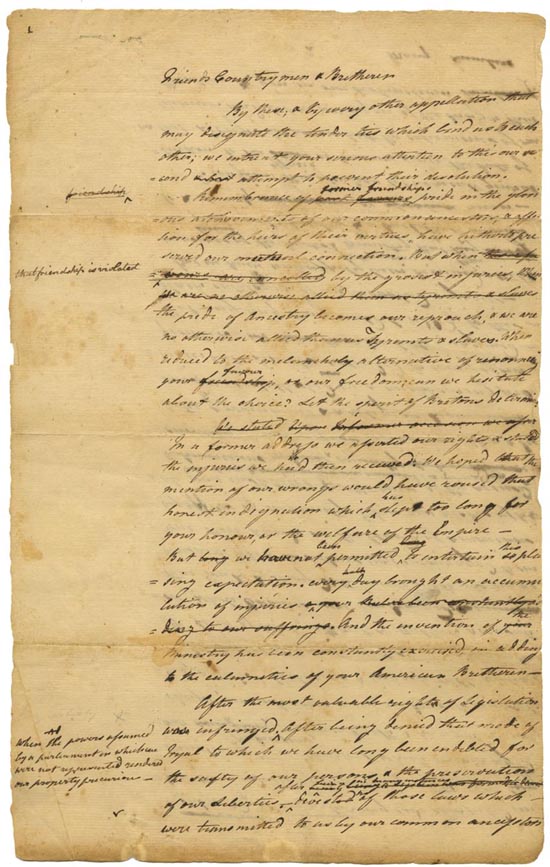 1
Friends Countrymen & Bretheren
By these, & by every other appellation that
may designate the tender ties which bind us to each
other; we intreat your serious attention to this our se
=cond attempt to prevent their dissolution.
friendship
former friendships
Remembrance of pride in the glori
=ous atchievements of our common ancestors, & affec
=tion for the heirs of their virtues, have hitherto pre
served our mutual connection. But when
that friendship is violated
cancelled by the grossest injuries, when
allied than as tyrants & slaves
the pride of Ancestry becomes our reproach, & we are
no otherwise allied than as Tyrants & slaves. When
reduced to the melancholy alternative of renouncing
favour
your friendship, or our freedom; can we hesitate
about the choice? Let the spirit of Britons determine
upon we assert
In a former address we asserted our rights, & stated
the injuries we had then received. We hoped that the
mention of our wrongs would have roused that
has
honest indignation which slept too long for
your honour, or the welfare of the Empire —
been
But we have not permitted to entertain this plea
=sing expectation. every day brought an accumu
the
lation of injuries
to our sufferings. And the invention of your
ministry has been constantly exercised in adding
to the calamities of your American Bretheren —
After the most valuable rights of legislation
were infringed,
when the powers assumed
by a parliament in which we
were not represented rendered
our property precarious —
After being denied that mode of
tryal to which we have long been indebted for
the safty of our persons, & the preservation
after being
of our Liberties, divested of those laws which
were transmitted to us by our common ancestors